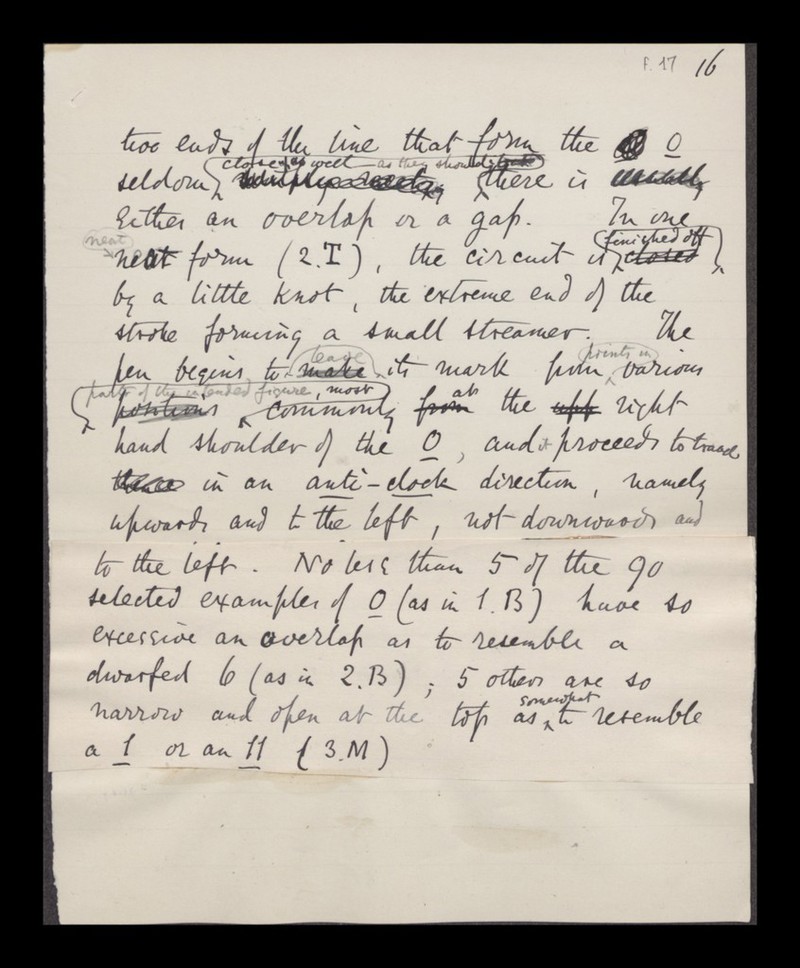 f. 17 16
two ends of the line that form the O
close as well as they should
seldom, there is
Either an overlap or a gap. In one
neat finished off
neat form (2.I), the circuit is closed
by a little knot, the extreme end of the
stroke forming a small streamer. The
leave points in
pen begins to make its mark from various
parts of the intended figure, most
positions commonly from at the upp right
hand shoulder of the O, and proceeds to trace
in an anti-clock direction, namely
upwards and to the left, not downwards and
to the left. No less than 5 of the 90
selected examples of O (as in 1.B) have so
excessive an overlap as to resemble a
dwarfed 6 (as in 2.B); 5 others are so
somewhat
narrow and open at the top as to resemble
a 1 or an 11 (3.M)